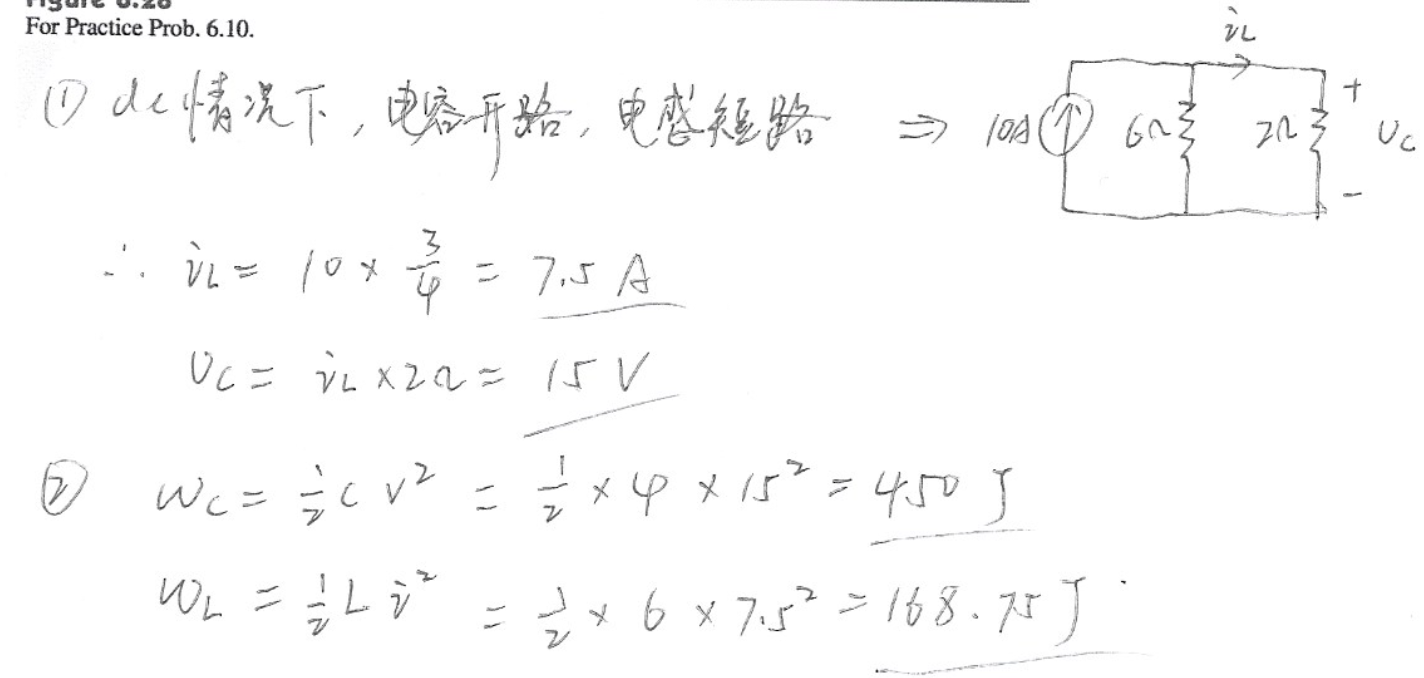 Figure 6.28
For Practice Prob. 6.10.
① dc情况下，电容开路，电感短路 ⇒
iL
10A 6Ω 2Ω + υc −
∴ iL = 10 × 3/4 = 7.5 A
υc = iL × 2Ω = 15 V
② wc = 1/2 C v² = 1/2 × 4 × 15² = 450 J
wL = 1/2 L i² = 1/2 × 6 × 7.5² = 168.75 J